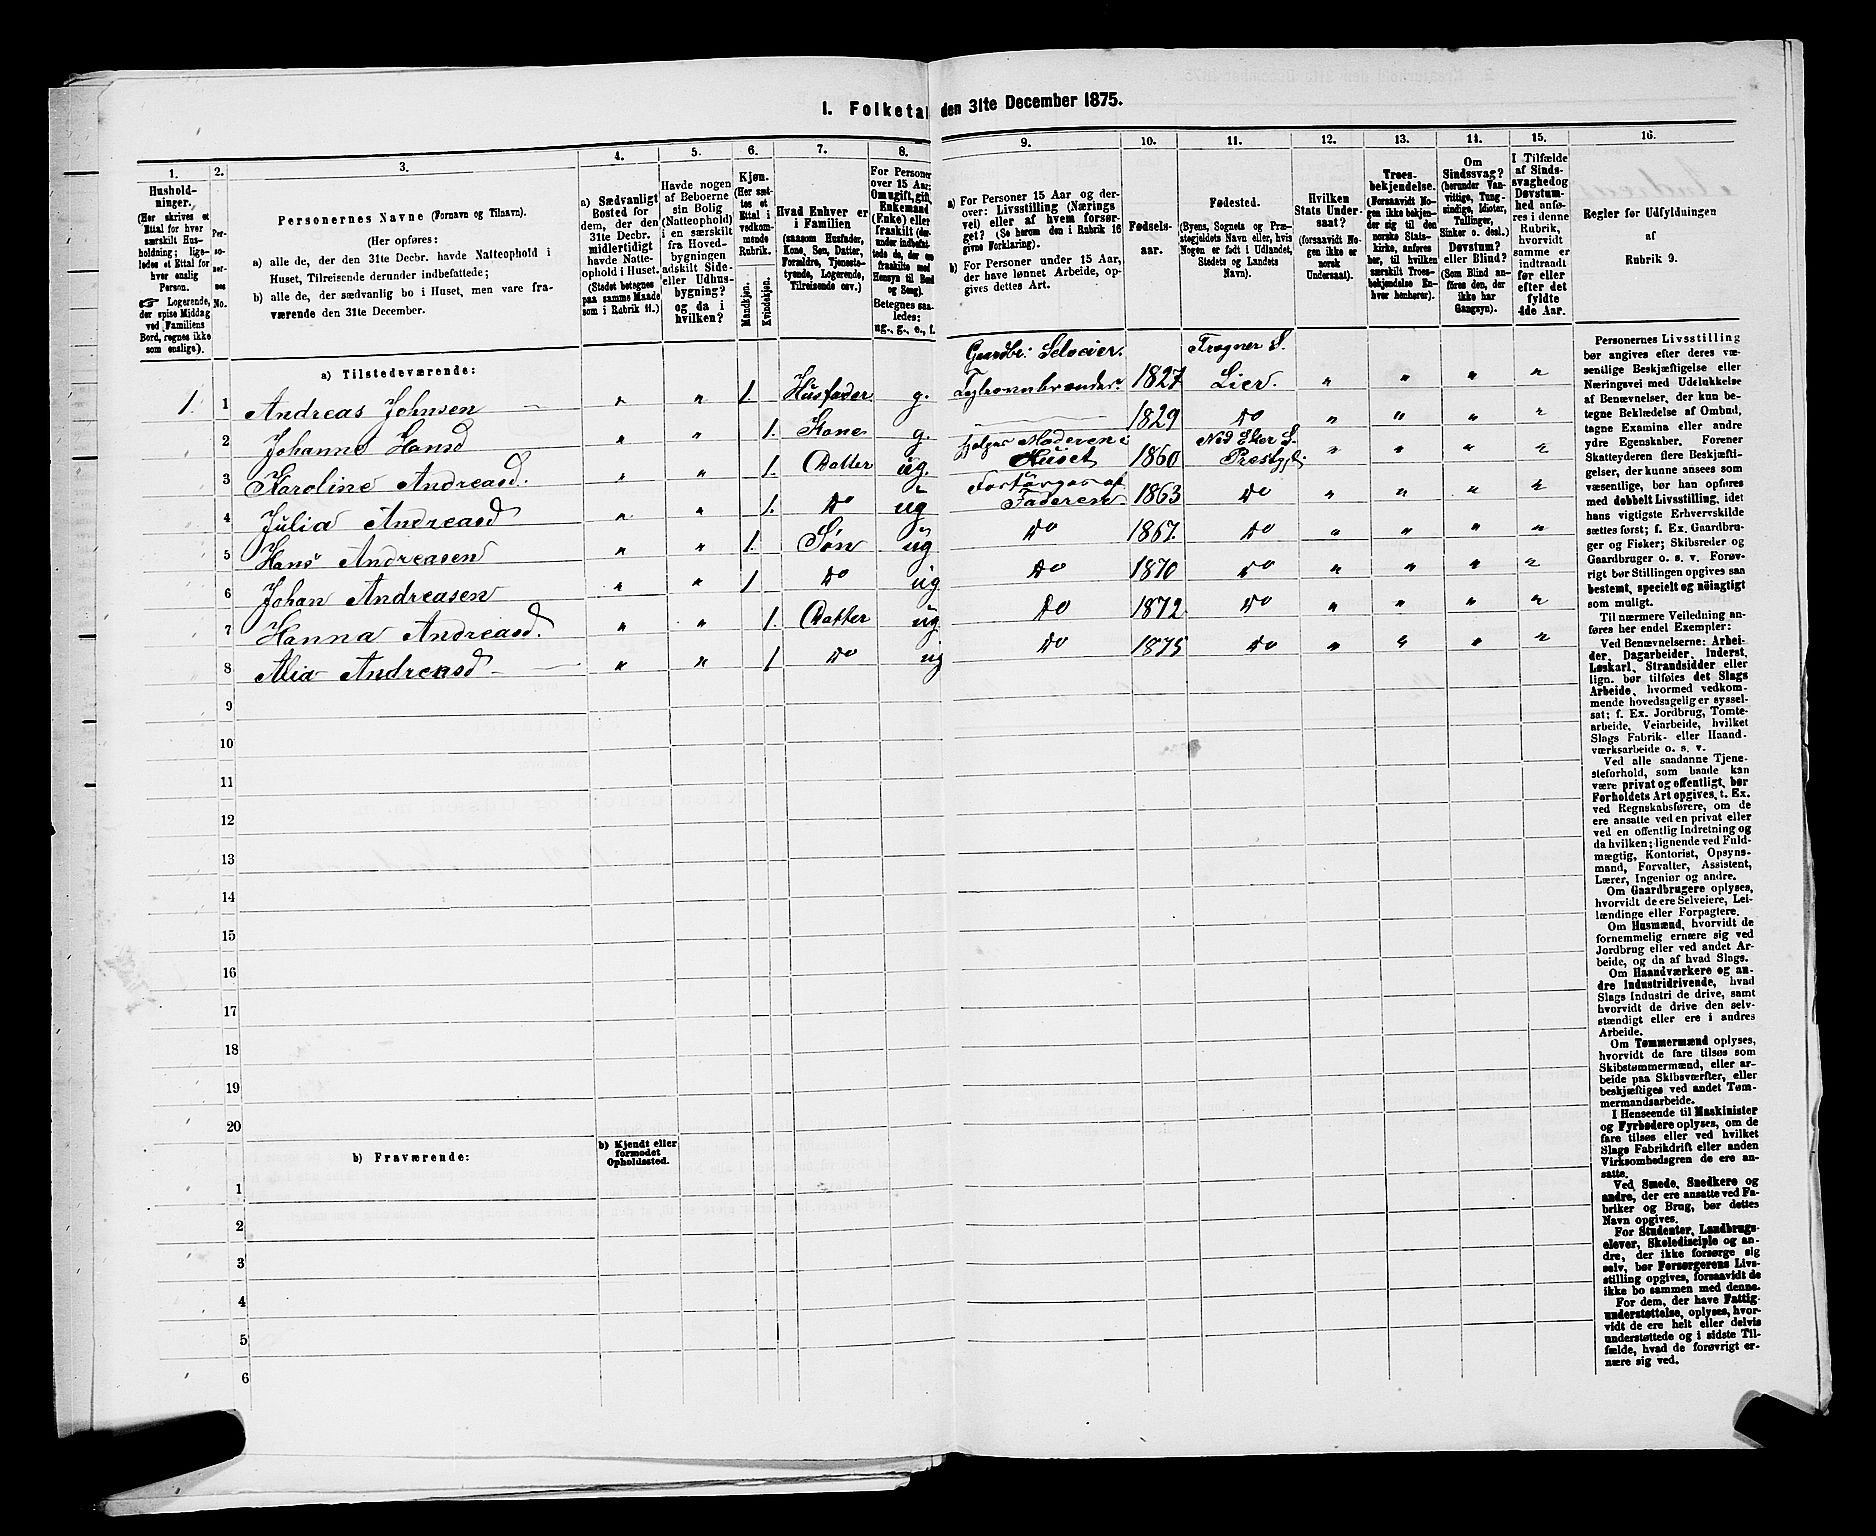 1. Folketal den 31te December 1875.
1.
Hushold-
ninger.
(Her skrives et
Ettal for hver
særskilt Hus-
holdning; lige-
ledes et Ettal for
hver enslig
Person.
☞ Logerende,
der spise Middag
ved Familiens
Bord, regnes ikke
som enslige).
2.
Per-
so-
ner-
nes
No.
3.
Personernes Navne (Fornavn og Tilnavn).
(Her opføres:
a) alle de, der den 31te Decbr. havde Natteophold i
Huset, Tilreisende derunder indbefattede;
b) alle de, der sædvanlig bo i Huset, men vare fra-
værende den 31te December.
4.
a) Sædvanligt
Bosted for
dem, der den
31te Decbr.
midlertidigt
havde Natte-
ophold i Huset.
(Stedet betegnes
paa samme Maade
som i Rubrik 11.)
5.
Havde nogen
af Beboerne
sin Bolig
(Natteophold)
i en særskilt
fra Hoved-
bygningen
adskilt Side-
eller Udhus-
bygning?
og da i
hvilken?
6.
Kjøn.
(Her sæt-
tes et
Ettal i
vedkom-
mende
Rubrik.
Mandkjøn.
Kvindekjøn.
7.
Hvad Enhver er
i Familien
(saasom Husfader,
Kone, Søn, Datter,
Forældre, Tjeneste-
tyende, Logerende,
Tilreisende osv.)
8.
For Personer
over 15 Aar:
Om ugift, gift,
Enkemand
(Enke) eller
fraskilt (der-
under indbefat-
tede de, der ere
fraskilte med
Hensyn til Bord
og Seng).
Betegnes saa-
ledes:
ug., g., e., f.
9.
a) For Personer 15 Aar og der-
over: Livsstilling (Nærings
vei) eller af hvem forsør-
get? (Se herom den i Rubrik 16
givne Forklaring).
b) For Personer under 15 Aar,
der have lønnet Arbeide, op-
gives dettes Art.
10.
Fødsels-
aar.
11.
Fødested.
(Byens, Sognets og Præ-
stegjeldets Navn eller, hvis
Nogen er født i Udlandet,
Stedets og Landets
Navn).
12.
Hvilken
Stats Under-
saat?
(forsaavidt No-
gen ikke er
norsk
Undersaat).
13.
Troes-
bekjendelse.
(Forsaavidt No-
gen ikke bekjen-
der sig til den
norske Stats-
kirke, anføres
her, til hvilken
særskilt Troes-
bekjendelse En-
hver henhører).
14.
Om
Sindssvag?
(herunder Van-
vittige, Tung-
sindige, Idioter,
Tullinger,
Sinker o. desl.)
Døvstum?
eller Blind?
(Som Blind an-
føres den, der
ikke har
Gangsyn).
15.
I Tilfælde
af Sinds-
svaghed og
Døvstum-
hed anfø-
res i denne
Rubrik,
hvorvidt
samme er
indtraadt
før eller
efter det
fyldte
4de Aar.
16.
Regler for Udfyldningen
af
Rubrik 9.
a) Tilstedeværende:
Gaardbr: Selveier. Trogner S.
1. 1 Andreas Johnsen — " " 1 Husfader g. 1827 Lier. " " " "
2 Johanne Hansd " " 1. Kone g. — 1829 Do " " " "
Moderen i Ned Eker S.
3 Karoline Andreasd. " " 1. Datter ug. Huset 1860 Prestgjl. " " " "
Forsørges af
4 Julia Andreasd " " 1. Do ug Faderen 1863 Do " " " "
5 Hans Andreasen " " 1. Søn ug Do 1867. Do " " " "
6 Johan Andreasen " " 1 Do ug. Do 1870 Do " " " "
7 Hanna Andreasd. " " 1. Datter ug. Do 1872 Do " " " "
8 Andreasd — " " 1 Do ug Do 1875 Do " " " "
9
10
11
12
13
14
15
16
17
18
19
20
b) Fraværende:
b) Kjendt eller
formodet
Opholdssted.
1
2
3
4
5
6
Personernes Livsstilling
bør angives efter deres væ-
sentlige Beskjæftigelse eller
Næringsvei med Udelukkelse
af Benævnelser, der kun be-
tegne Beklædelse af Ombud,
tagne Examina eller andre
ydre Egenskaber. Forener
Skatteyderen flere Beskjæfti-
gelser, der kunne ansees som
væsentlige, bør han opføres
med dobbelt Livsstilling, idet
hans vigtigste Erhvervskilde
sættes først; f. Ex. Gaardbru-
ger og Fisker; Skibsreder og
Gaardbruger o. s. v. Forøv-
rigt bør Stillingen opgives saa
bestemt, specielt og nöiagtigt
som muligt.
Til nærmere Veiledning an-
føres her endel Exempler:
Ved Benævnelserne: Arbei-
der, Dagarbeider, Inderst,
Løskarl, Strandsidder eller
lign. bør tilføies det Slags
Arbeide, hvormed vedkom-
mende hovedsagelig er syssel-
sat; f. Ex. Jordbrug, Tomte-
arbeide, Veiarbeide, hvilket
Slags Fabrik- eller Haand-
værksarbeide o. s. v.
Ved alle saadanne Tjene-
steforhold, som baade kan
være privat og offentligt, bør
Forholdets Art opgives, t. Ex.
ved Regnskabsførere, om de
ere ansatte ved en privat eller
ved en offentlig Indretning og
da hvilken; lignende ved Fuld-
mægtig, Kontorist, Opsyns-
mand, Forvalter, Assistent,
Lærer, Ingeniør og andre.
Om Gaardbrugere oplyses,
hvorvidt de ere Selveiere, Lei-
lændinge eller Forpagtere.
Om Husmænd, hvorvidt de
fornemmelig ernære sig ved
Jordbrug eller ved andet Ar-
beide, og da af hvad Slags.
Om Haandværkere og an-
dre Industridrivende, hvad
Slags Industri de drive, samt
hvorvidt de drive den selv-
stændigt eller ere i andres
Arbeide.
Om Tømmermænd oplyses,
hvorvidt de fare tilsøs som
Skibstømmermænd, eller ar-
beide paa Skibsværfter, eller
beskjæftiges ved andet Tøm-
mermandsarbeide.
I Henseende til Maskinister
og Fyrbødere oplyses, om de
fare tilsøs eller ved hvilket
Slags Fabrikdrift eller anden
Virksomhedsgren de ere an-
satte.
Ved Smede, Snedkere og
andre, der ere ansatte ved Fa-
briker og Brug, bør dettes
Navn opgives.
For Studenter, Landbrugs-
elever, Skoledisciple og an-
dre, der ikke forsørge sig
selv, bør Forsørgerens Livs-
stilling opgives, forsaavidt de
ikke bo sammen med denne.
For dem, der have Fattig-
understøttelse, oplyses, hvor-
vidt de ere helt eller delvis
understøttede og i sidste Til-
fælde, hvad de forøvrigt er-
nære sig ved.